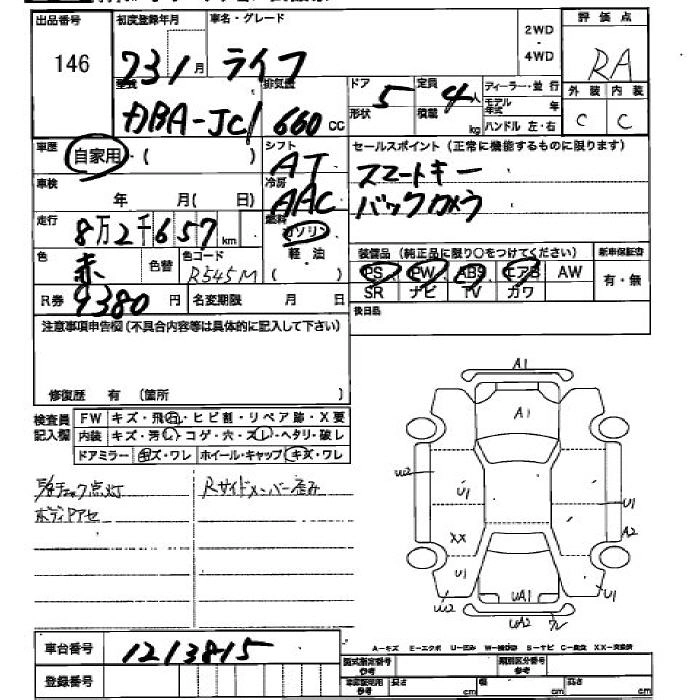 出品番号 初度登録年月 車名・グレード 2WD・4WD 評価点
146 23 1月 ライフ RA
型式 排気量 ドア形状 5 定員積載 4人 kg ディーラー・並行 外装 内装
DBA-JC1 660 CC モデル年式 年 C C
ハンドル 左・右
車歴 自家用・( ) シフト AT セールスポイント(正常に機能するものに限ります)
車検 年 月( 日) 冷房 AAC スマートキー
走行 8万2千657km 燃料 ガソリン バックカメラ
色 赤 色替 色コード R545M 軽油 装備品(純正品に限り○をつけてください) 新車保証書
PS PW ABS エアB AW 有・無
R券 9380円 名変期限 月 日 SR ナビ TV カワ
注意事項申告欄(不具合内容等は具体的に記入して下さい) 後日品
修復歴 有 (箇所 )
検査員記入欄 FW キズ・飛石・ヒビ割・リペア跡・X要
内装 キズ・汚レ・コゲ・穴・スレ・ヘタリ・破レ
ドアミラー キズ・ワレ ホイール・キャップ キズ・ワレ
チェック点灯 Rサイドメンバー歪み
ボディアセ
A1
A1
W2 U1 U1
XX A2
U1 U1
W2 UA1
UA2
車台番号 1213815 A-キズ E-エクボ U-凹み S-サビ C-腐食 XX-交換済
登録番号 型式指定番号 参考 類別区分番号 参考
参考 長さ cm 幅 cm 高さ cm